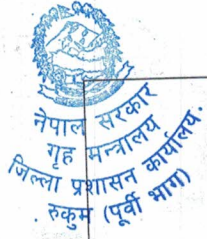 नेपाल सरकार
गृह मन्त्रालय
जिल्ला प्रशासन कार्यालय.
. रुकुम (पूर्वी भाग)